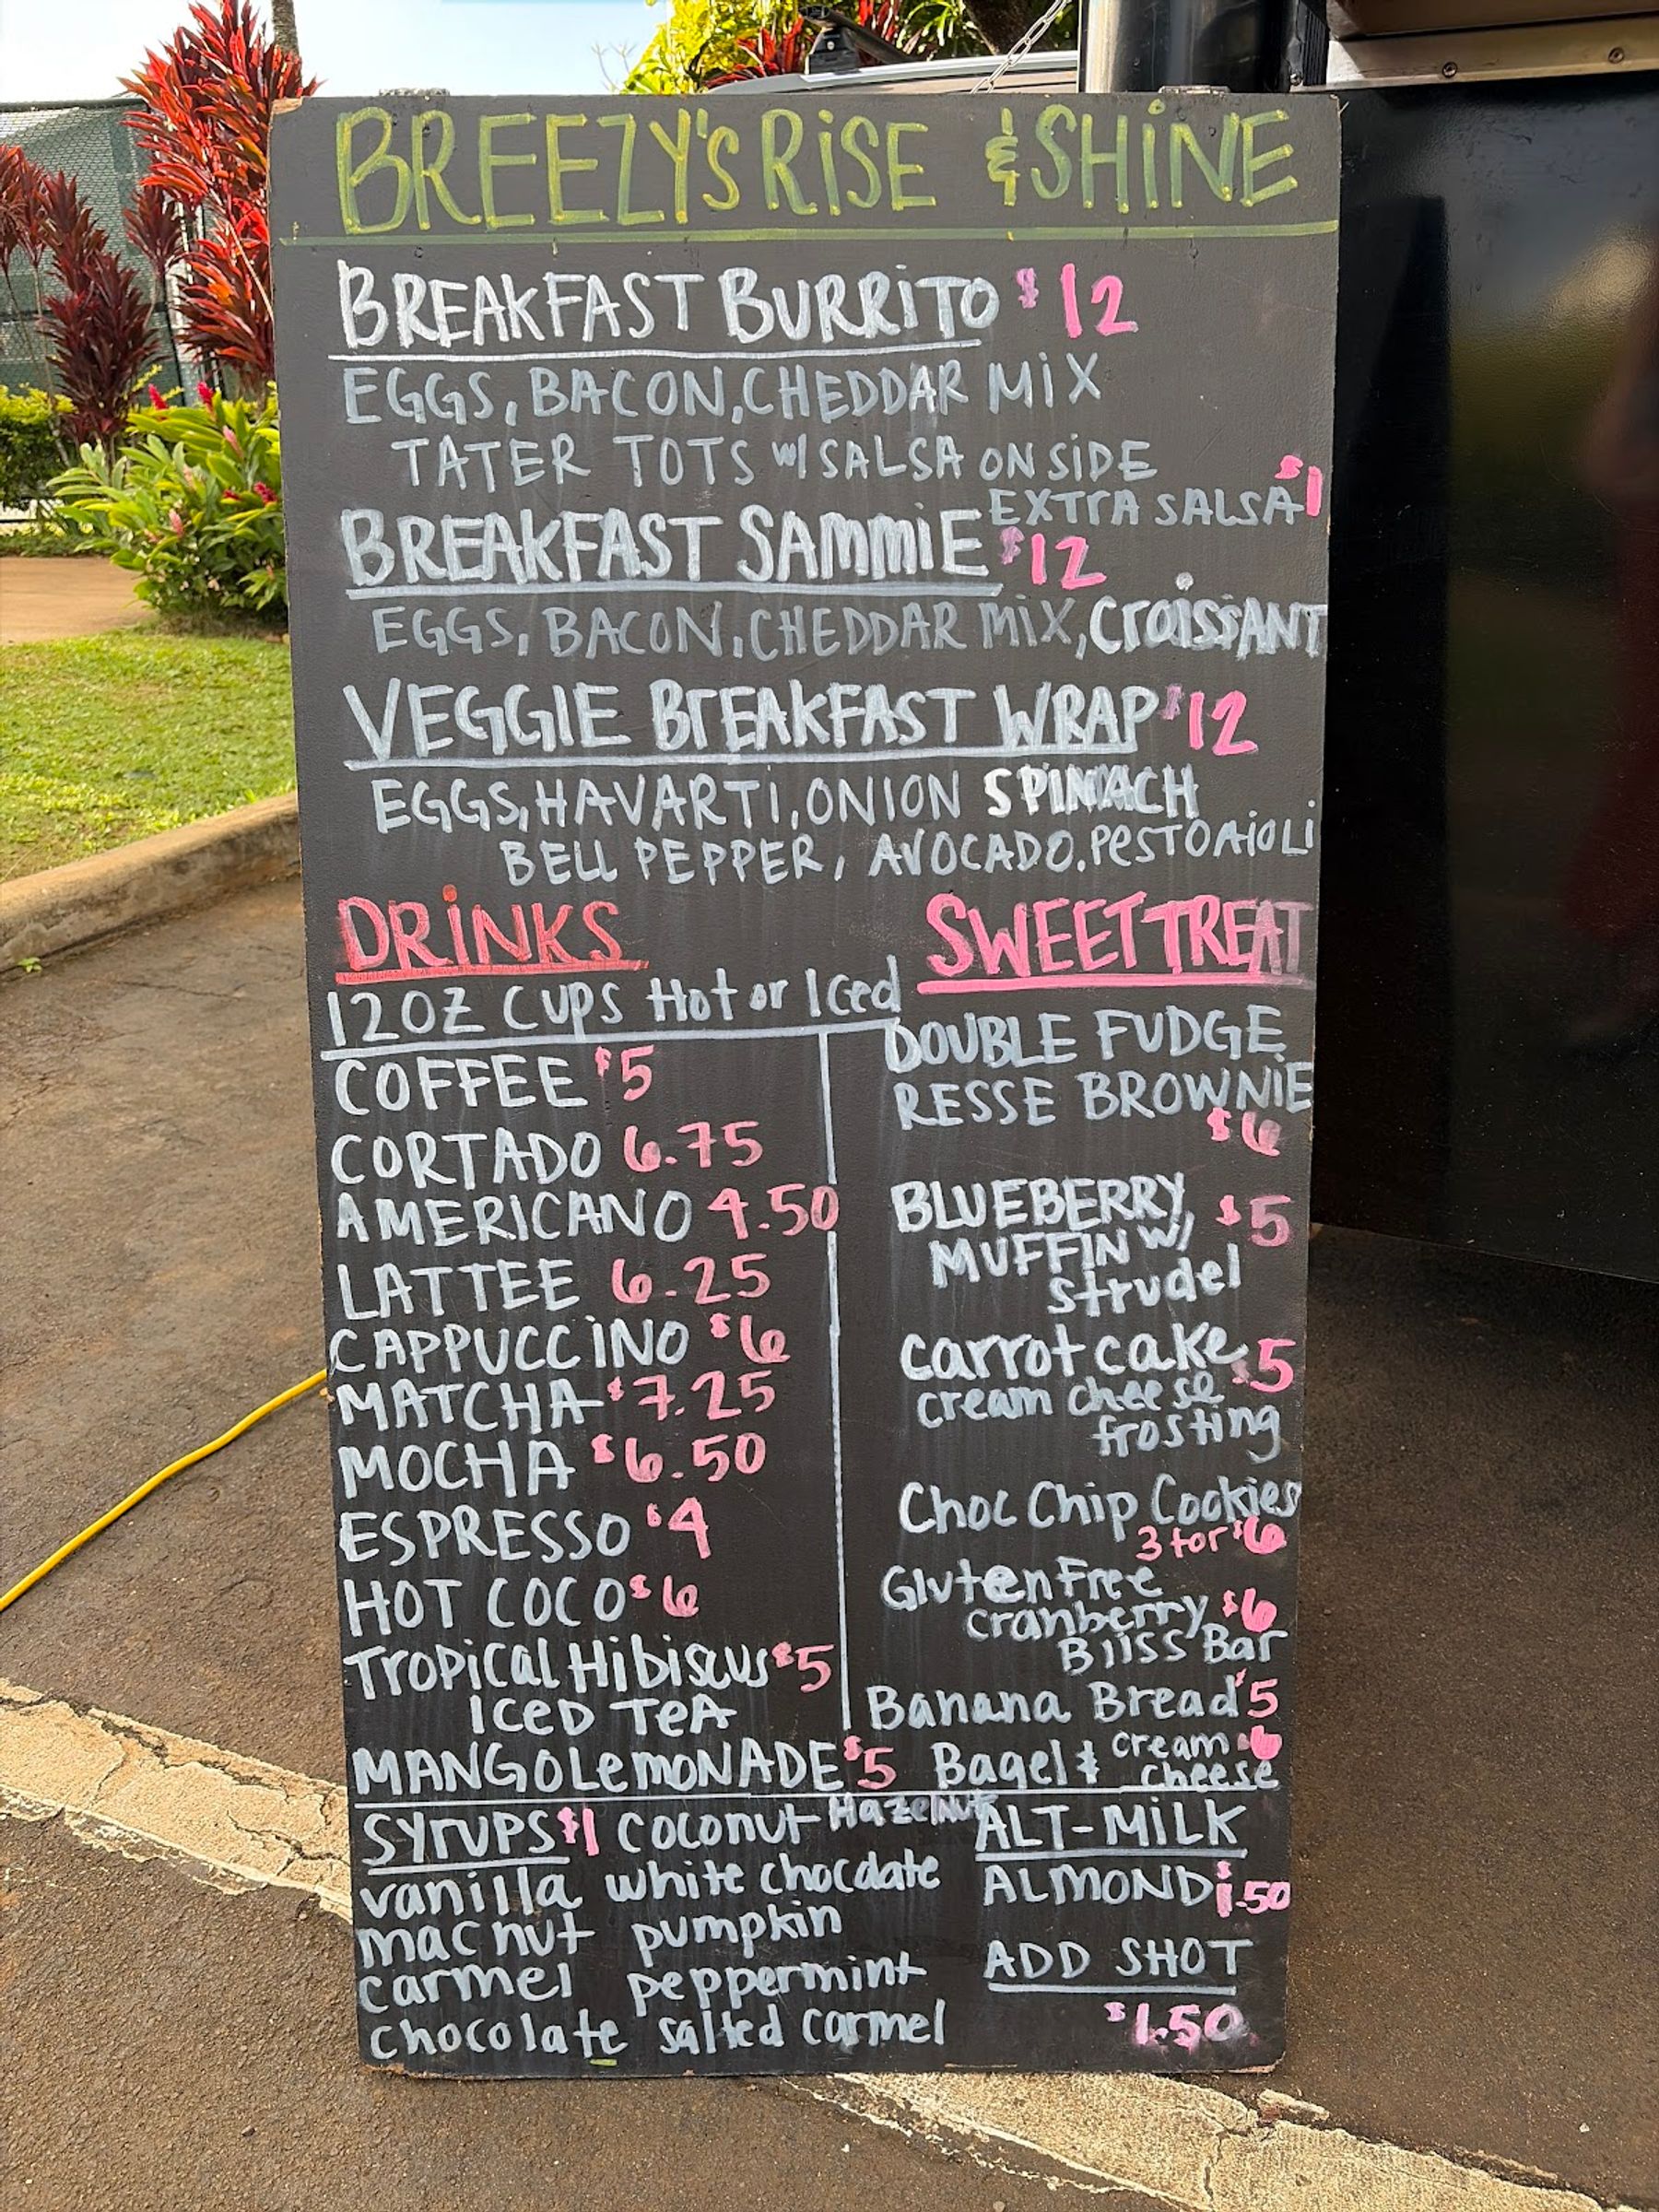 BREEZY'S RISE & SHINE
BREAKFAST BURRITO $12
EGGS, BACON, CHEDDAR MIX
TATER TOTS W/ SALSA ON SIDE
EXTRA SALSA $1
BREAKFAST SAMMIE $12
EGGS, BACON, CHEDDAR MIX, CROISSANT
VEGGIE BREAKFAST WRAP $12
EGGS, HAVARTI, ONION SPINACH
BELL PEPPER, AVOCADO, PESTO AIOLI
DRINKS
12OZ CUPS Hot or Iced
COFFEE $5
CORTADO 6.75
AMERICANO 4.50
LATTEE 6.25
CAPPUCCINO $6
MATCHA $7.25
MOCHA $6.50
ESPRESSO $4
HOT COCO $6
Tropical Hibiscus $5
ICED TEA
MANGO LemoNADE $5
SWEET TREAT
DOUBLE FUDGE
RESSE BROWNIE
$6
BLUEBERRY $5
MUFFIN W/
Strudel
carrot cake $5
cream cheese
frosting
Choc Chip Cookies
3 for $6
Gluten Free
cranberry $6
Bliss Bar
Banana Bread $5
Bagel & cream $6
cheese
SYrUPS $1 coconut Hazelnut
vanilla white chocolate
mac nut pumpkin
carmel peppermint
chocolate salted carmel
ALT-MILK
ALMOND $1.50
ADD SHOT
$1.50